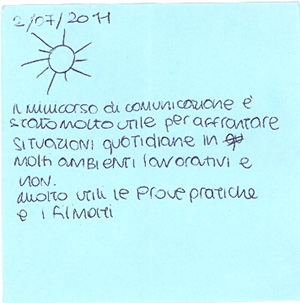 2/07/2011
Il minicorso di comunicazione é
stato molto utile per affrontare
situazioni quotidiane in
molti ambienti lavorativi e
non.
Molto utili le prove pratiche
e i filmati